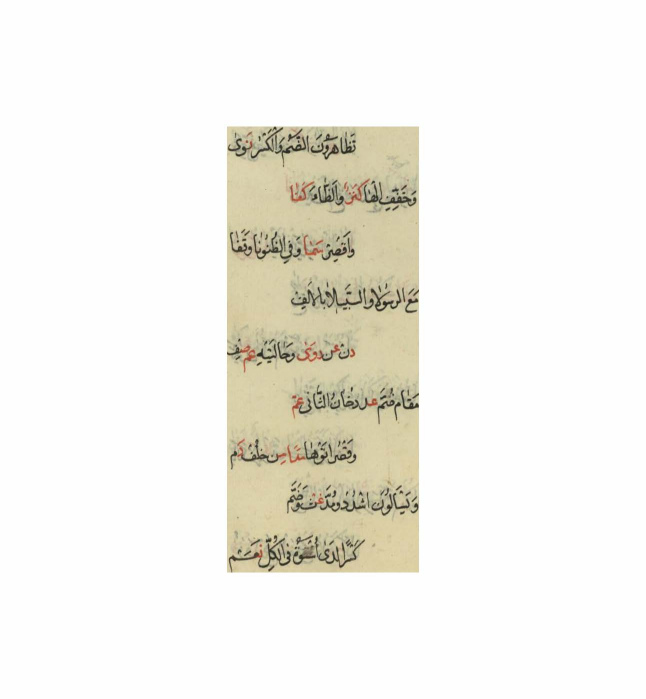 تظاهرون الضم والكسر نوى
وخفف الها كنز والظاء كفا
واقصر سما وفي الظنونا وقفا
مع الرسولا والسبيلا بالالف
دن عن روى وحالتيه عم صف
مقام ضم عد دخان الثاني عم
وقصر اتوها مدا من خلف دم
ويسالون اشدد ومد غث وضم
كسرا لدى اسوة في الكل نعم